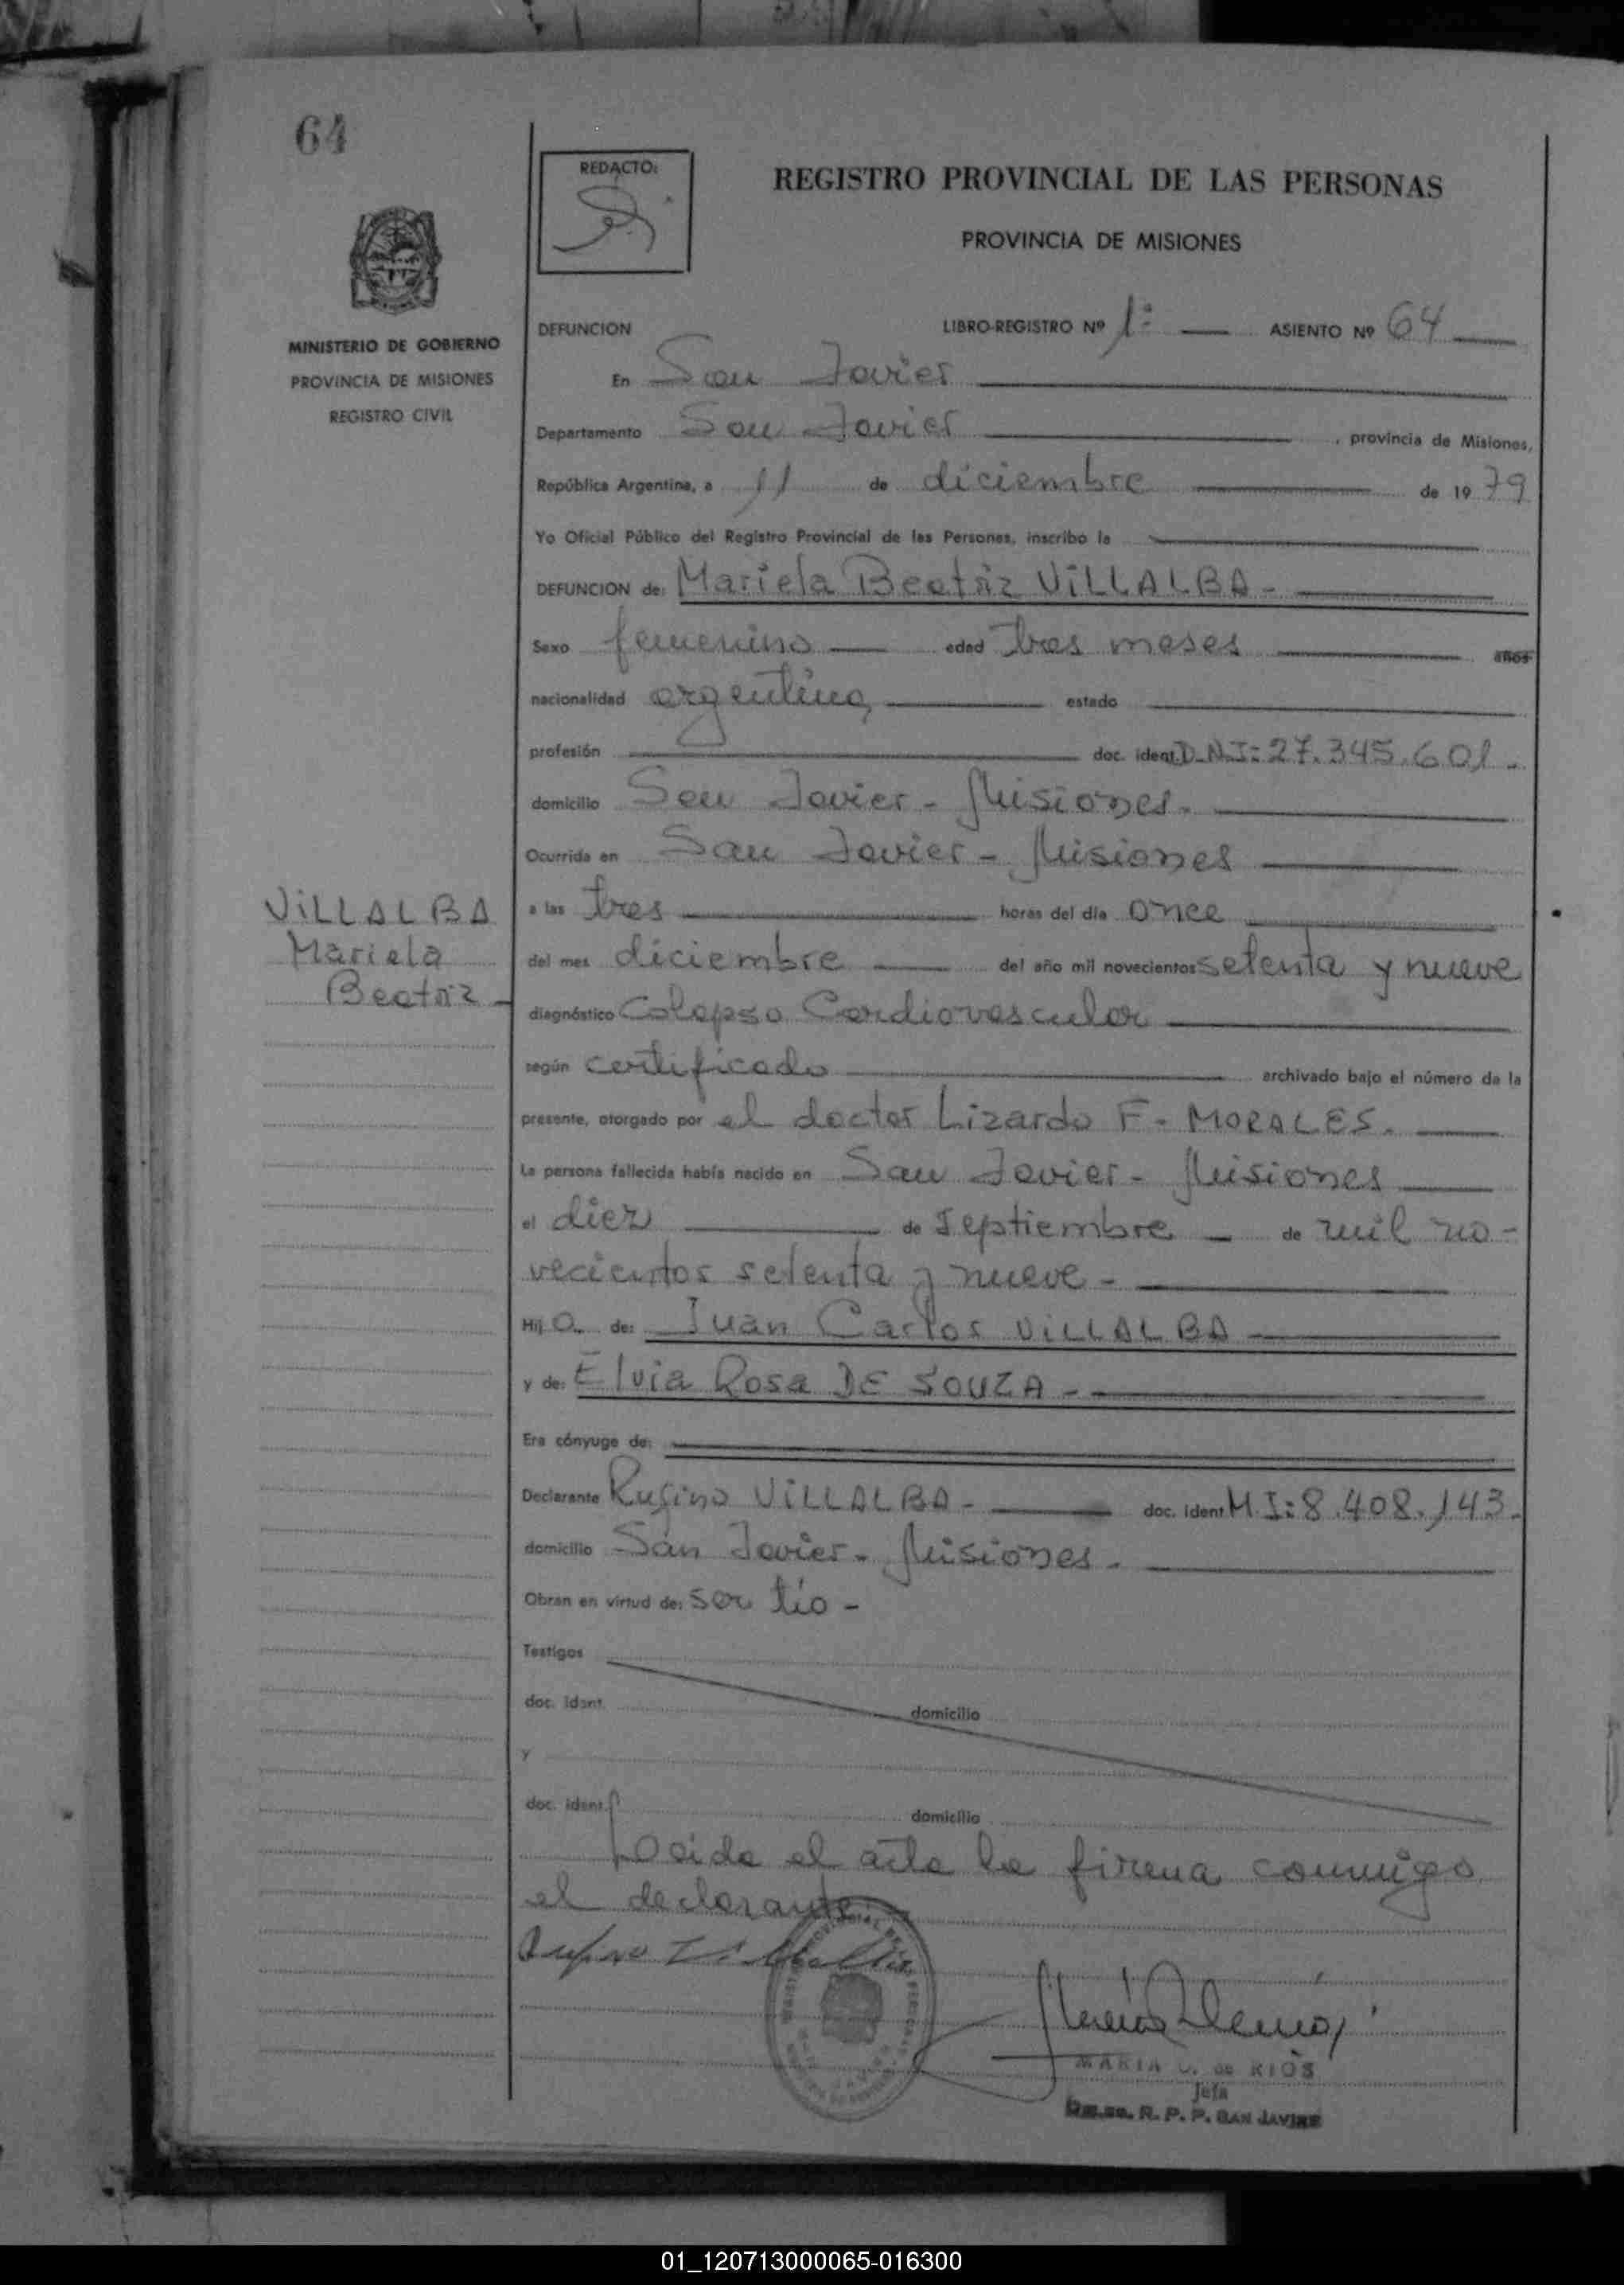 64
REDACTO:
REGISTRO PROVINCIAL DE LAS PERSONAS
PROVINCIA DE MISIONES
MINISTERIO DE GOBIERNO
PROVINCIA DE MISIONES
REGISTRO CIVIL
DEFUNCION LIBRO-REGISTRO Nº 1º — ASIENTO Nº 64
En San Javier
Departamento San Javier, provincia de Misiones,
República Argentina, a 11 de diciembre de 1979
Yo Oficial Público del Registro Provincial de las Personas, inscribo la
DEFUNCION de: Mariela Beatriz VILLALBA -
Sexo femenino edad tres meses años
nacionalidad argentina estado
profesión doc. ident. D.N.I: 27.345.601.
domicilio San Javier - Misiones.
Ocurrida en San Javier - Misiones
a las tres horas del día once
VILLALBA
Mariela
Beatriz -
del mes diciembre del año mil novecientos setenta y nueve
diagnóstico Colapso Cardiovascular
según certificado archivado bajo el número de la
presente, otorgado por el doctor Lizardo F. MORALES.
La persona fallecida había nacido en San Javier - Misiones
el diez de septiembre de mil no-
vecientos setenta y nueve -
Hij a. de: Juan Carlos VILLALBA
y de: Elvia Rosa DE SOUZA -
Era cónyuge de:
Declarante Rufino VILLALBA - doc. ident M.I: 8.408.143.
domicilio San Javier - Misiones.
Obran en virtud de: ser tío -
Testigos
doc. ident. domicilio
y
doc. ident. domicilio
Leída el acta la firma conmigo
el declarante
Rufino Villalba
MARIA de RIOS
Jefa
R. P. P. SAN JAVIER
01_120713000065-016300